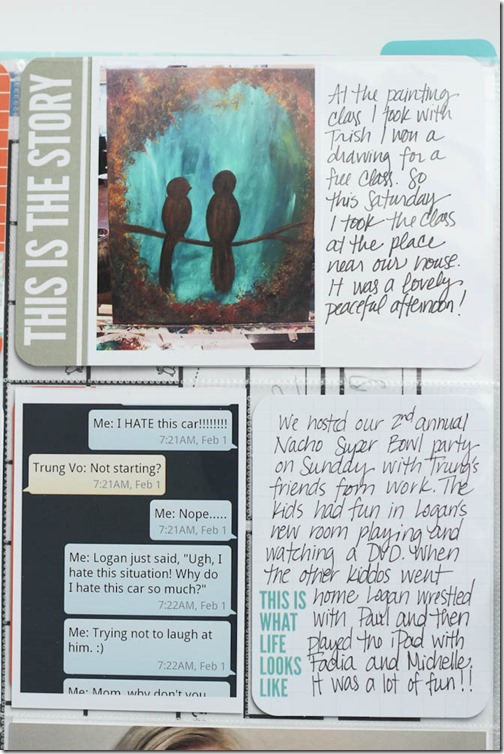 THIS IS THE STORY
At the painting
class I took with
Trish I won a
drawing for a
free class. So
this Saturday
I took the class
at the place
near our house.
It was a lovely,
peaceful afternoon!
Me: I HATE this car!!!!!!!!
7:21AM, Feb 1
Trung Vo: Not starting?
7:21AM, Feb 1
Me: Nope.....
7:21AM, Feb 1
Me: Logan just said, "Ugh, I
hate this situation! Why do
I hate this car so much?"
7:22AM, Feb 1
Me: Trying not to laugh at
him. :)
7:22AM, Feb 1
Me: Mom, why don't you
We hosted our 2nd annual
Nacho Super Bowl party
on Sunday with Trung's
friends form work. The
kids had fun in Logan's
new room playing and
watching a DVD. When
the other kiddos went
home Logan wrestled
with Paul and then
played the iPad with
Fadia and Michelle.
It was a lot of fun!!
THIS IS
WHAT
LIFE
LOOKS
LIKE